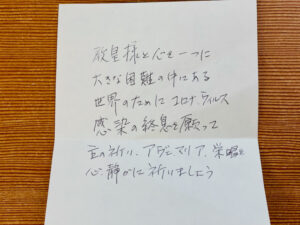 教皇様と心を一つに
大きな困難の中にある
世界のために コロナウィルス
感染の終息を願って
主の祈り、アヴェ・マリア、栄唱を
心静かに祈りましょう